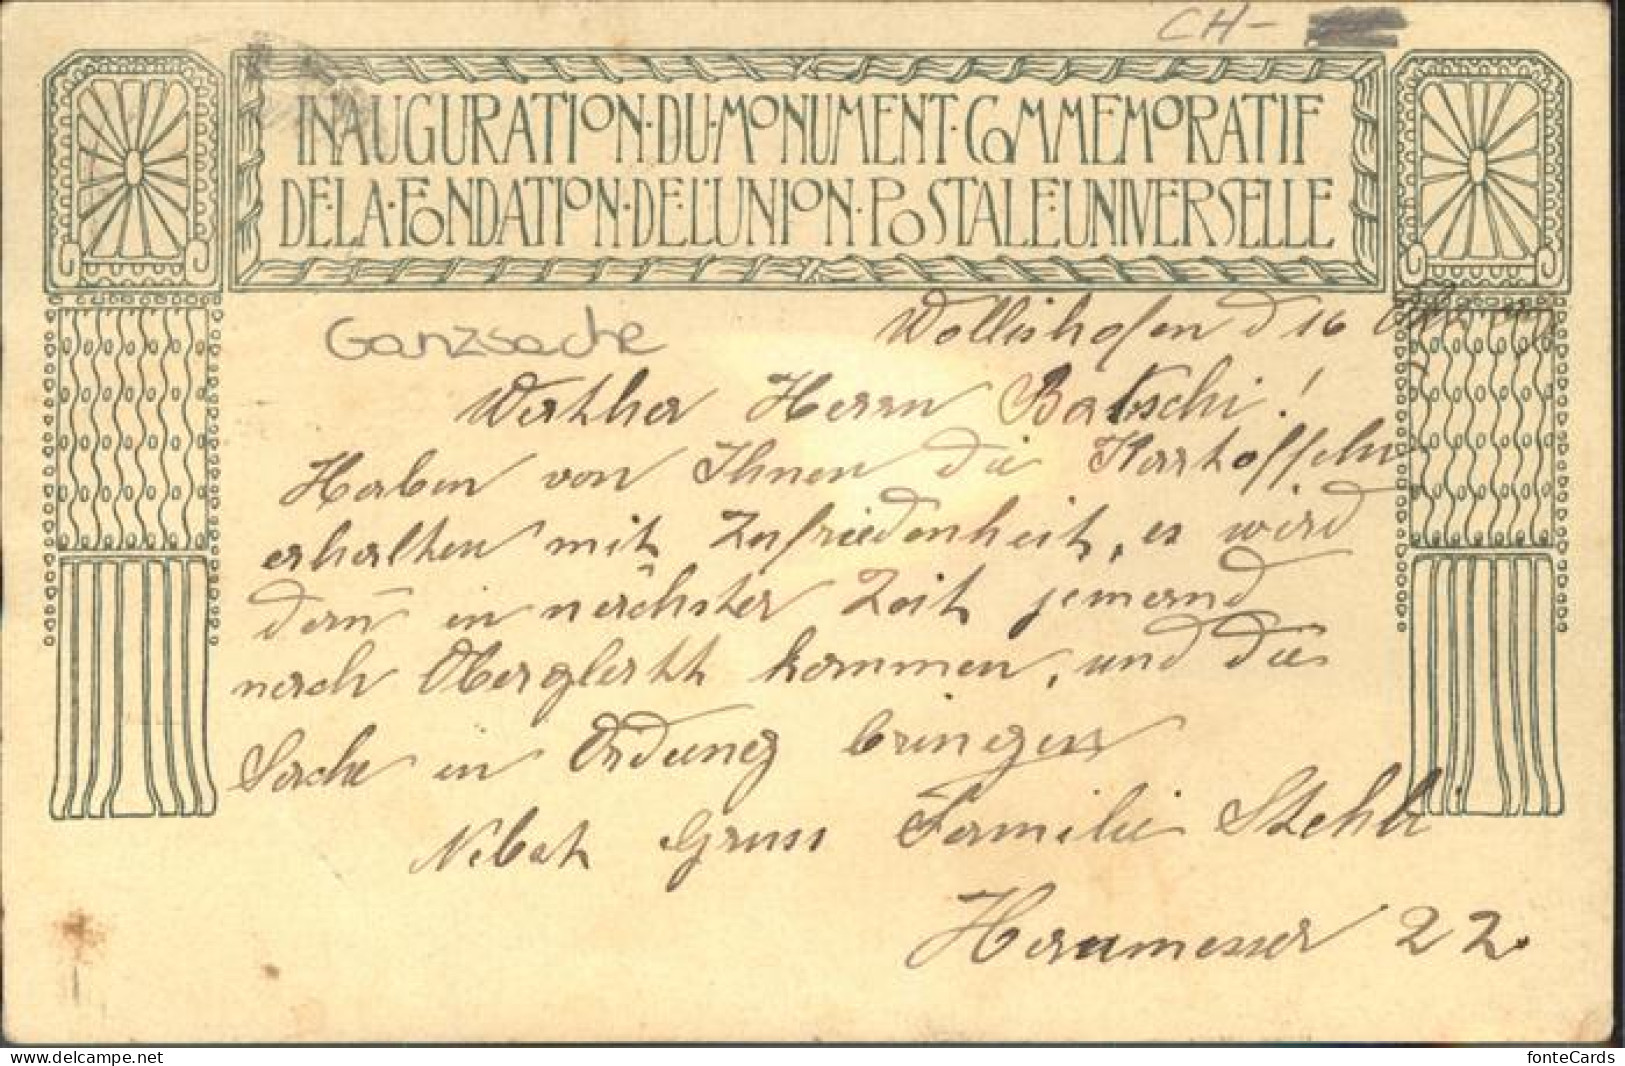 CH-
INAUGURATION·DU·MONUMENT·COMMEMORATIF
DE·LA·FONDATION·DE·L'UNION·POSTALE·UNIVERSELLE
Ganzsache
Wollishofen d 16
Werther Herrn Batschi!
Haben von Ihnen die Kartoffeln
erhalten mit Zufriedenheit, es wird
dann in nächster Zeit jemand
nach Oberglatt kommen, und die
Sache in Ordung bringen
Nebst Gruss Familie Stehli
22.
www.delcampe.net
fonteCards